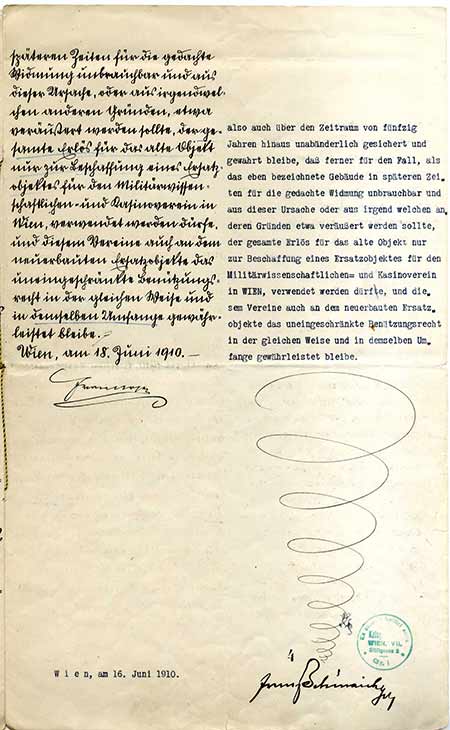 späteren Zeiten für die gedachte
Widmung unbrauchbar und aus
dieser Ursache, oder aus irgendwel-
chen anderen Gründen, etwa
veräußert werden sollte, der ge-
samte Erlös für das alte Objekt
nur zur Beschaffung eines Ersatz-
objektes für den Militärwissen-
schaftlichen- und Kasinoverein in
Wien, verwendet werden dürfe,
und diesem Vereine auch an dem
neuerbauten Ersatzobjekte das
uneingeschränkte Benützungs-
recht in der gleichen Weise und
in demselben Umfange gewähr-
leistet bleibe.-
Wien, am 18. Juni 1910.-
also auch über den Zeitraum von fünfzig
Jahren hinaus unabänderlich gesichert und
gewahrt bleibe, daß ferner für den Fall, als
das eben bezeichnete Gebäude in späteren Zei
ten für die gedachte Widmung unbrauchbar und
aus dieser Ursache oder aus irgend welchen an
deren Gründen etwa veräußert werden sollte,
der gesamte Erlös für das alte Objekt nur
zur Beschaffung eines Ersatzobjektes für den
Militärwissenschaftlichen= und Kasinoverein
in WIEN, verwendet werden dürfte, und die
sem Vereine auch an dem neuerbauten Ersatz
objekte das uneingeschränkte Benützungsrecht
in der gleichen Weise und in demselben Um
fange gewährleistet bleibe.
WIEN, VII.
Wien, am 16. Juni 1910.